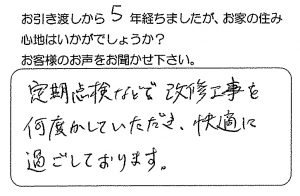 お引き渡しから 5 年経ちましたが、お家の住み
心地はいかがでしょうか？
お客様のお声をお聞かせ下さい。
定期点検などで 改修工事を
何度かしていただき、快適に
過ごしております。